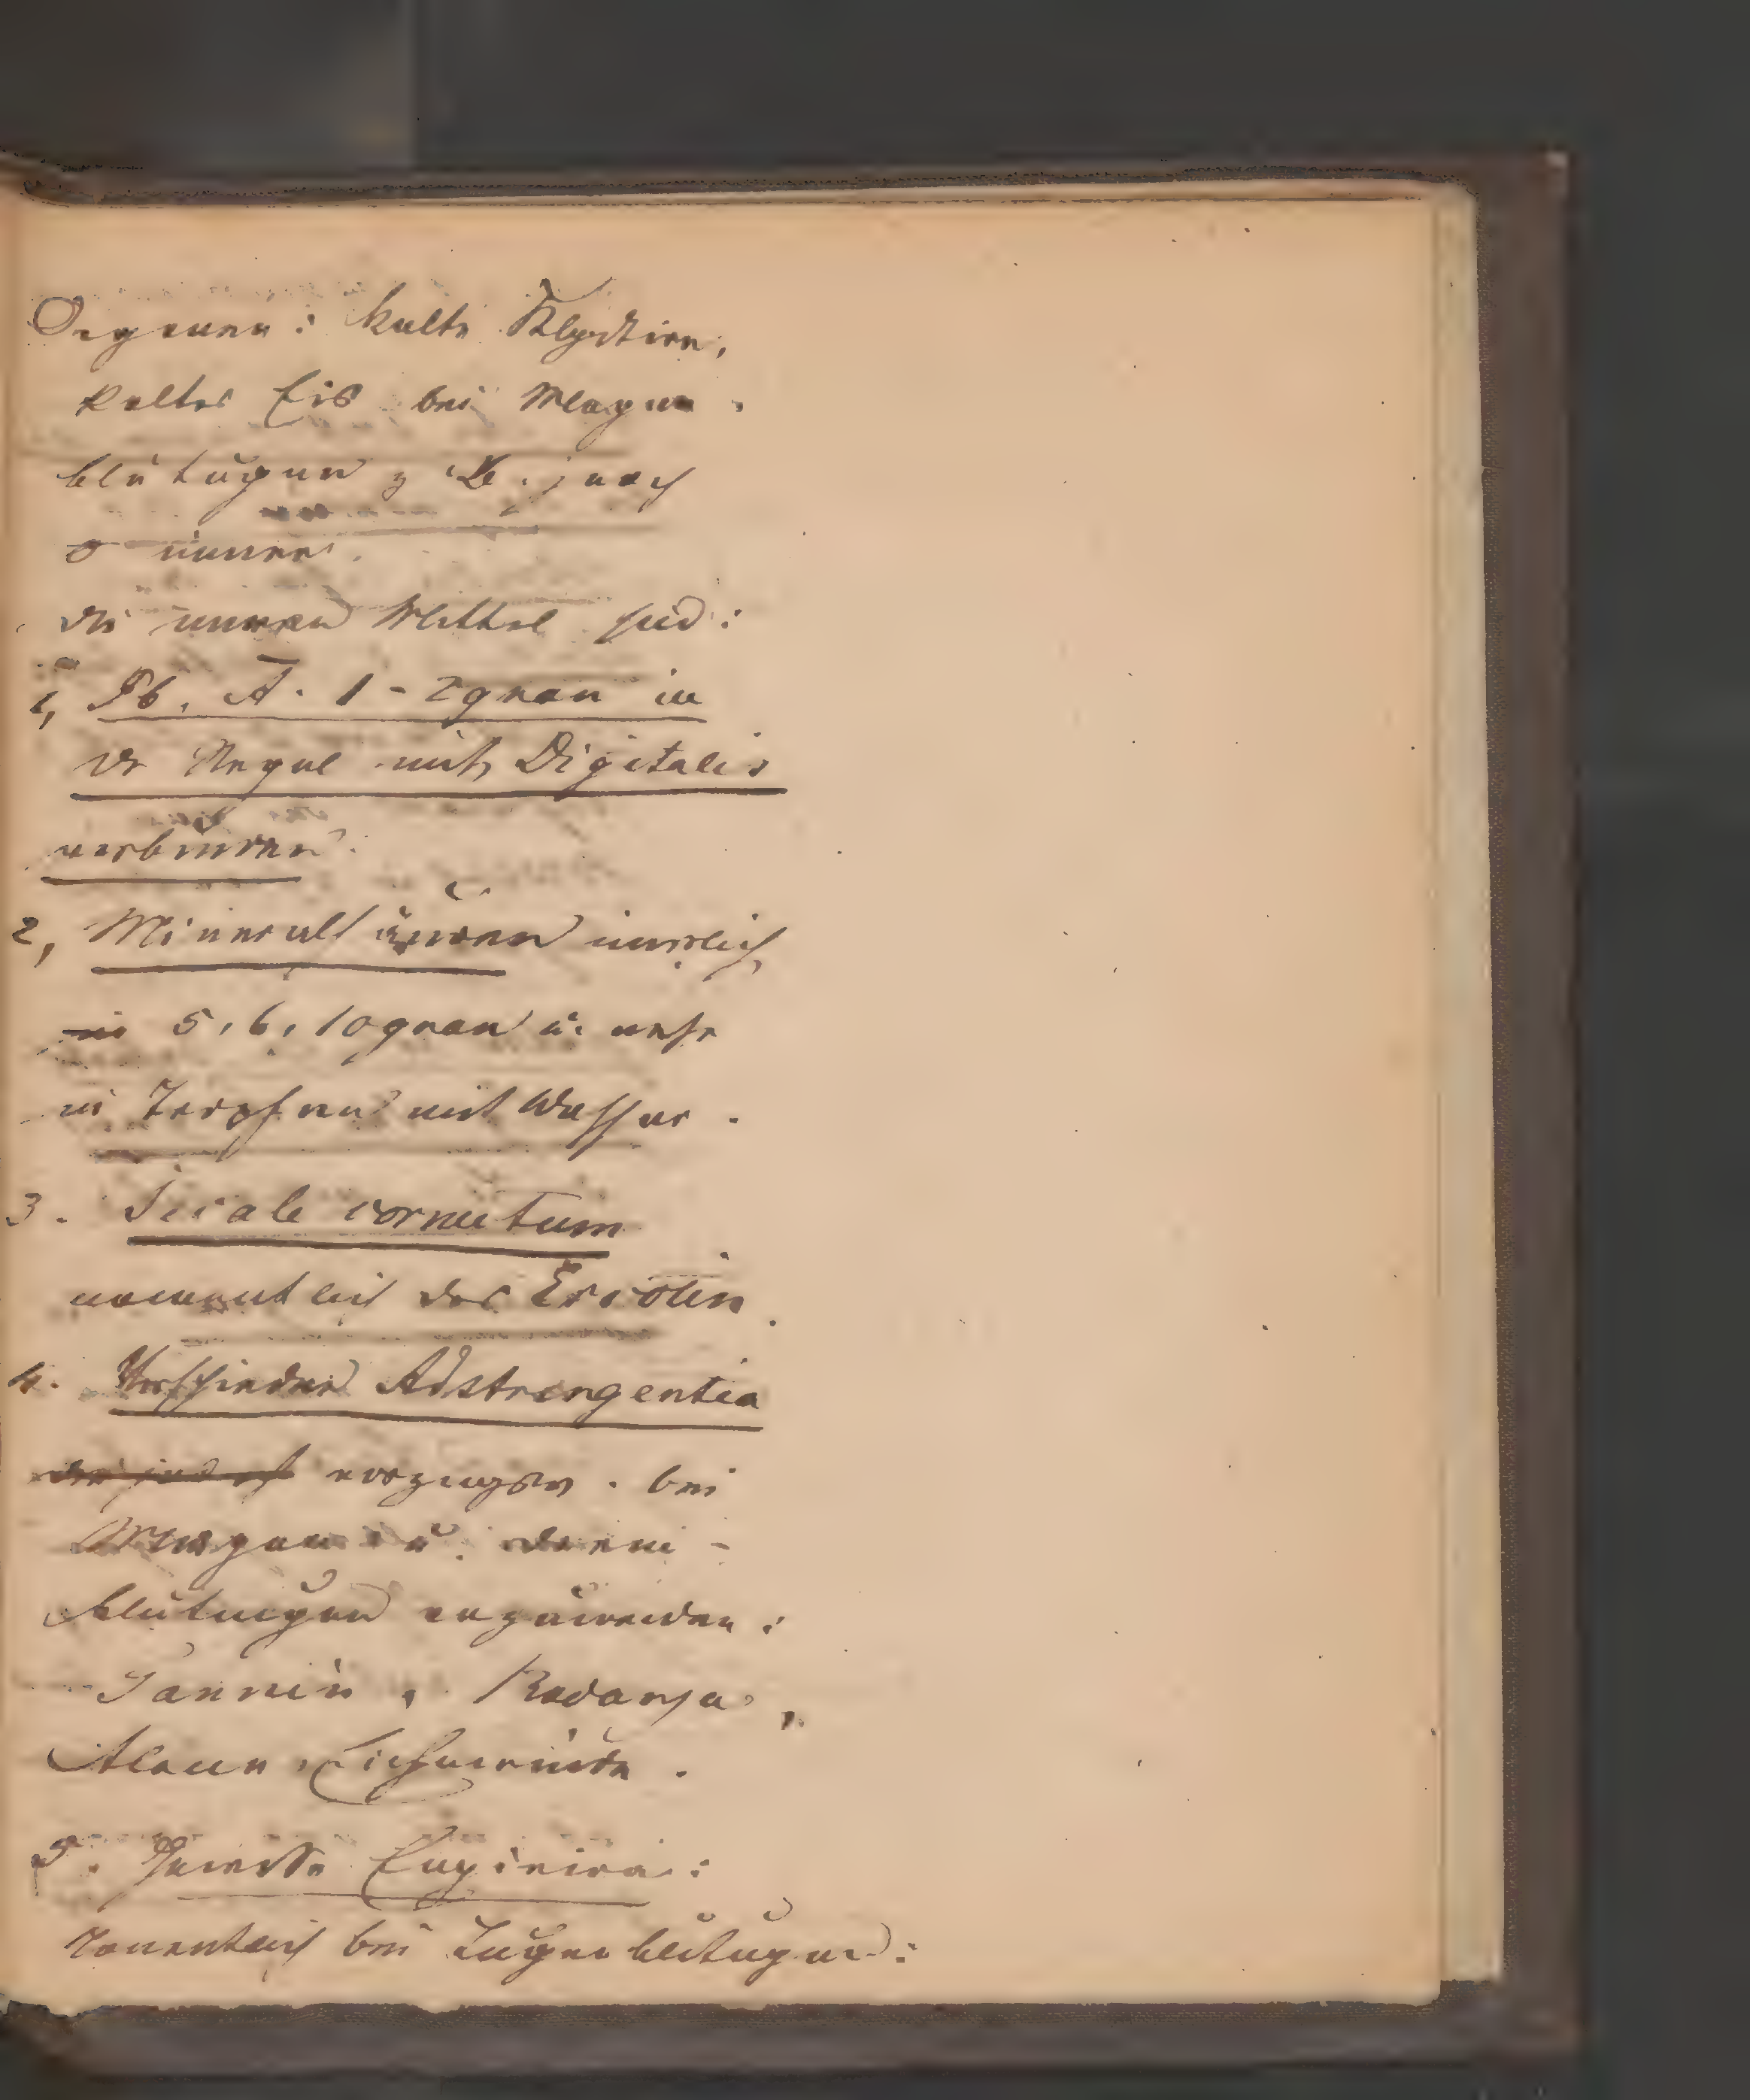 Organen: kalte Klystire,
kaltes Eis bei Magen
blutungen z. B. jnach
innere.
die inneren Mittel sind:
1, Pb. A. 1-2 gran in
der Regel mit Digitalis
verbunden.
2, Mineralsäuren innerlich,
5, 6, 10 gran u. mehr
in Tropfen mit Wasser.
3. Secale cornutum
namentlich das Ergotin.
4. Verschiedene Adstringentia
vorzugsw. bei
Magen u. Darm-
blutungen anzuwenden:
Tannin, Ratanhia,
Alaun, Eichenrinde.
5. Gewisse
namentlich bei Lungenblutungen: